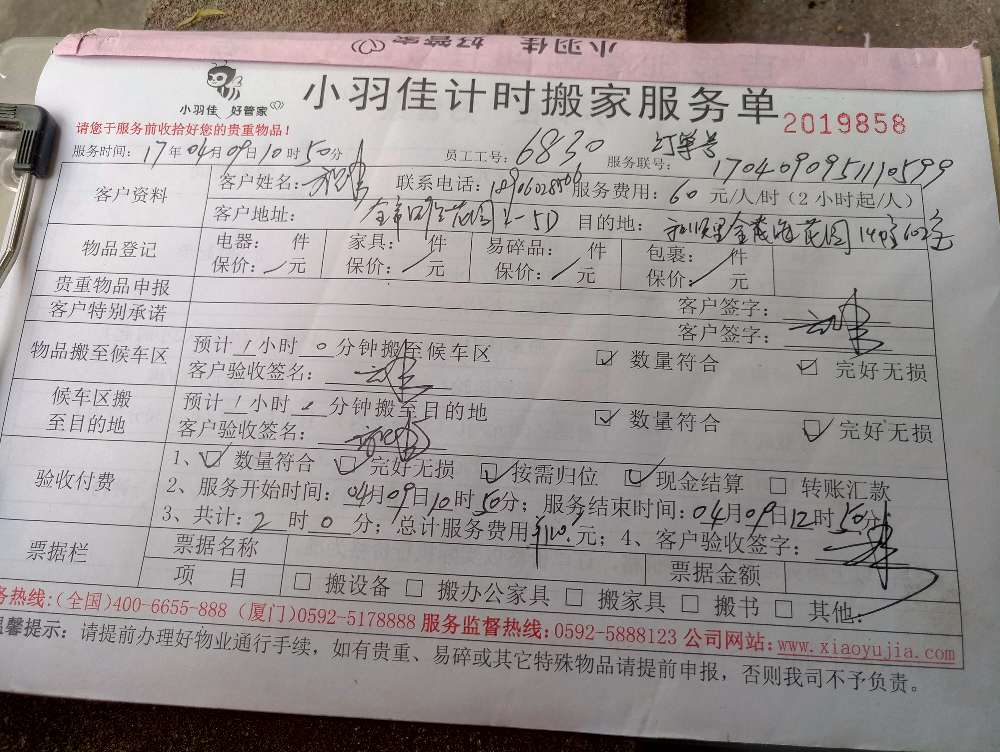 小羽佳 好管家
小羽佳 好管家
小羽佳计时搬家服务单
2019858
请您于服务前收拾好您的贵重物品！
订单号
服务时间：17年04月09日10时50分 员工工号：6830 服务联号：17040909511110599
客户资料
客户姓名： 联系电话： 服务费用：60元/人/时（2小时起/人）
客户地址： 目的地：
物品登记
电器： 件 家具： 件 易碎品： 件 包裹： 件
保价：/元 保价：/元 保价：/元 保价：/元
贵重物品申报 客户签字：
客户特别承诺 客户签字：
物品搬至候车区
预计1小时0分钟搬至候车区 ☑数量符合 ☑完好无损
客户验收签名：
候车区搬至目的地
预计1小时 分钟搬至目的地 ☑数量符合 ☑完好无损
客户验收签名：
验收付费
1、☑数量符合 ☑完好无损 ☑按需归位 ☑现金结算 □转账汇款
2、服务开始时间：04月09日10时50分；服务结束时间：04月09日12时50分
3、共计：2时0分；总计服务费用 元；4、客户验收签字：
票据栏
票据名称 票据金额
项 目 □搬设备 □搬办公家具 □搬家具 □搬书 □其他：
务热线：(全国)400-6655-888 (厦门)0592-5178888 服务监督热线：0592-5888123 公司网站：www.xiaoyujia.com
温馨提示：请提前办理好物业通行手续，如有贵重、易碎或其它特殊物品请提前申报，否则我司不予负责。